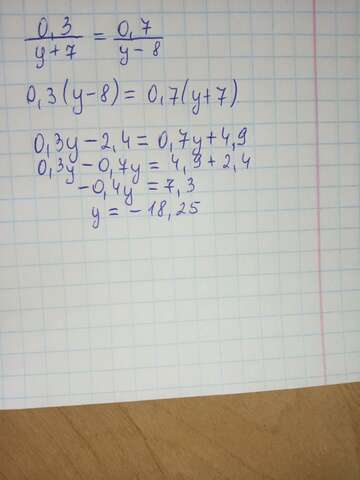 0,3/y+7 = 0,7/y-8
0,3(y-8) = 0,7(y+7)
0,3y-2,4 = 0,7y+4,9
0,3y-0,7y = 4,9+2,4
-0,4y = 7,3
y = -18,25